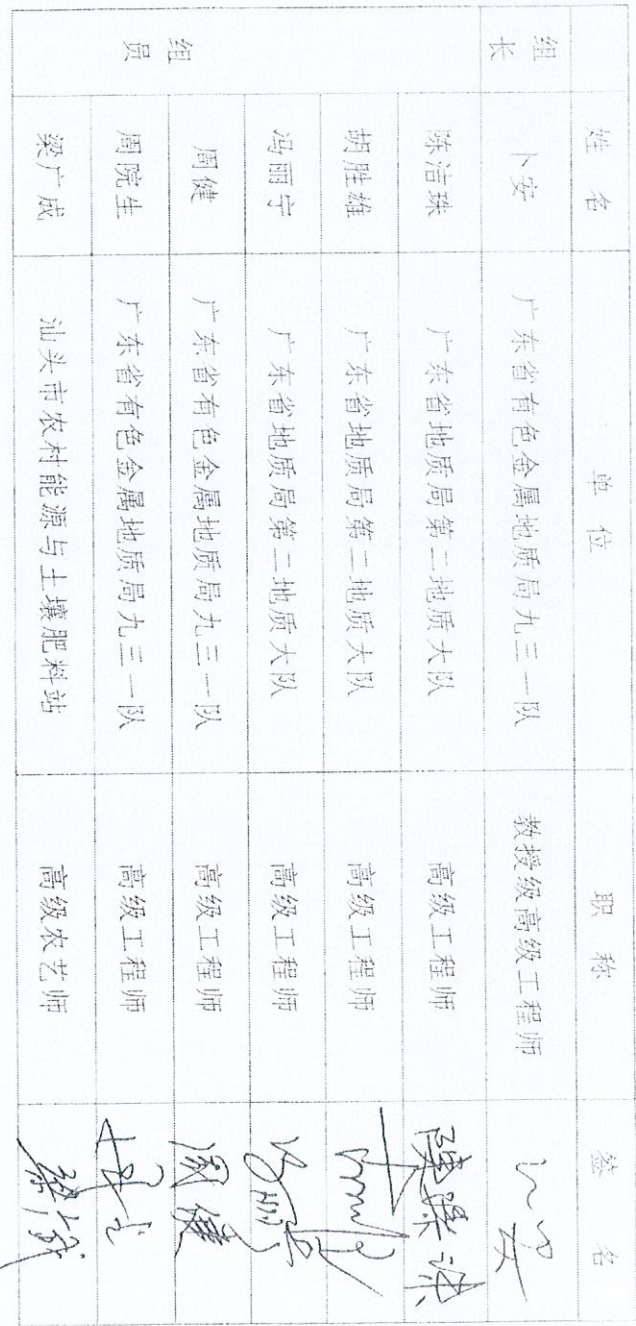 姓 名 单 位 职 称 签 名
组长 卜安 广东省有色金属地质局九三一队 教授级高级工程师
组员 陈洁珠 广东省地质局第二地质大队 高级工程师
胡胜雄 广东省地质局第二地质大队 高级工程师
冯丽宇 广东省地质局第二地质大队 高级工程师
周健 广东省有色金属地质局九三一队 高级工程师 周健
周院生 广东省有色金属地质局九三一队 高级工程师
梁广成 汕头市农村能源与土壤肥料站 高级农艺师